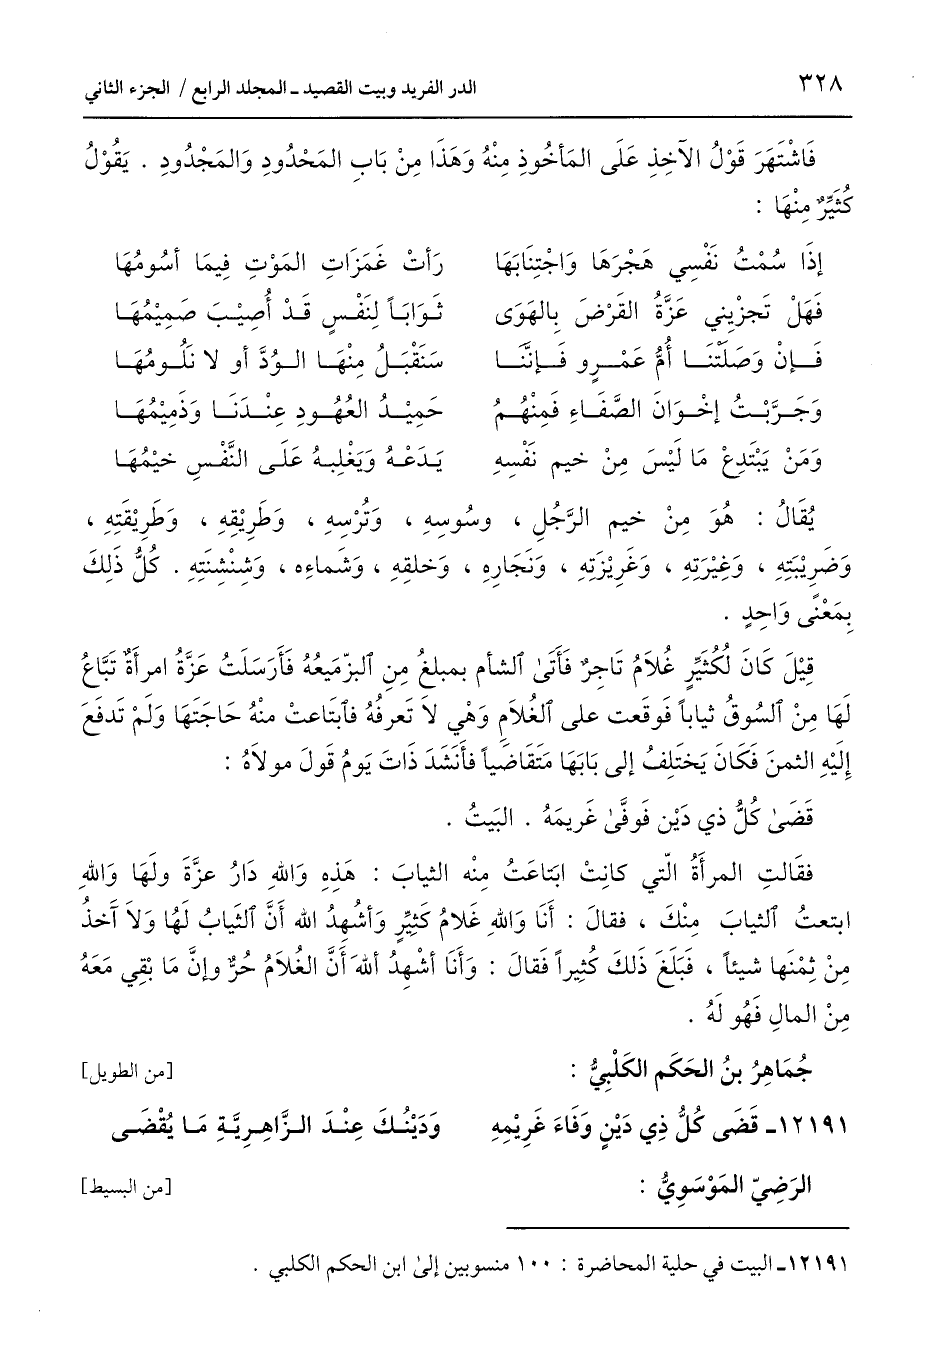 ٣٢٨ الدر الفريد وبيت القصيد ـ المجلد الرابع / الجزء الثاني
فَاشْتَهَرَ قَوْلُ الآخِذِ عَلَى المَأخُوذِ مِنْهُ وَهَذَا مِنْ بَابِ المَحْدُودِ وَالمَجْدُودِ . يَقُوْلُ
كُثَيِّرٌ مِنْهَا :
إذَا سُمْتُ نَفْسِي هَجْرَهَا وَاجْتِنَابَهَا رَأتْ غَمَزَاتِ المَوْتِ فِيمَا أسُومُهَا
فَهَلْ تَجزِيني عَزَّةُ القَرْضَ بِالهَوَى ثَوَابَاً لِنَفْسٍ قَدْ أُصِيْبَ صَمِيْمُهَا
فَإنْ وَصَلَتْنَا أُمُّ عَمْرٍو فَإنَّنَا سَنَقْبَلُ مِنْهَا الوُدَّ أو لا نَلُومُهَا
وَجَرَّبْتُ إخْوَانَ الصَّفَاءِ فَمِنْهُمُ حَمِيْدُ العُهُودِ عِنْدَنَا وَذَمِيْمُهَا
وَمَنْ يَبْتَدِعْ مَا لَيْسَ مِنْ خيمِ نَفْسِهِ يَدَعْهُ وَيَغْلِبهُ عَلَى النَّفْسِ خيْمُهَا
يُقَالُ : هُوَ مِنْ خيمِ الرَّجُلِ ، وسُوسِهِ ، وَتُرْسِهِ ، وَطَرِيْقِهِ ، وَطَرِيْقَتِهِ ،
وَضَرِيْبَتِهِ ، وَغِيْرَتِهِ ، وَغَرِيْزَتِهِ ، وَنَجَارِهِ ، وَخلقِهِ ، وَشَماءِه ، وَشِنْشِنَتِهِ . كُلُّ ذَلِكَ
بِمَعْنًى وَاحِدٍ .
قِيْلَ كَانَ لُكُثَيِّرٍ غُلاَمُ تَاجِرٌ فَأتَىٰ ٱلشأم بمبلغُ مِنِ ٱلبزّميَعُهُ فَأرَسَلَتُ عَزَّةُ امرأةٌ تَبَّاعُ
لَهَا مِنْ ٱلسُوقُ ثياباً فَوقعت على ٱلغُلاَمِ وَهْي لاَ تَعرفُهُ فٱبتَاعتْ منْهُ حَاجتَهَا وَلَمْ تدفَعَ
إلَيْهِ الثمنَ فكَانَ يَختلِفُ إلى بَابَهَا مَتَقَاضياً فأنشَدَ ذَاتَ يَومُ قَولَ مولاَهُ :
قَضَىٰ كُلُّ ذي دَيْنٍ فَوفَّىٰ غَريمَهُ . البَيتُ .
فقَالتِ المرأةُ الّتي كانِتْ ابتَاعَتُ مِنْه الثيابَ : هَذِهِ وَاللهِ دَارُ عزَّةَ ولَهَا وَاللهِ
ابتعتُ ٱلثيابَ مِنْكَ ، فقالَ : أنَا وَاللهِ غَلامُ كثيِّرٍ وَأشُهدُ الله أنَّ ٱلثيابُ لَهُا وَلاَ آخذُ
مِنْ ثِمْنَها شيئاً ، فَبَلَغَ ذَلكَ كُثيراً فَقالَ : وَأنَا أشْهدُ ٱللهَ أنَّ الغُلاَمَ حُرٌّ وإنَّ مَا بقِي مَعَهُ
مِنْ المالِ فَهُو لَهُ .
جُمَاهِرُ بنُ الحَكَمِ الكَلْبِيُّ : [من الطويل]
١٢١٩١ـ قَضَى كُلُّ ذِي دَيْنٍ وَفَاءَ غَرِيْمِهِ وَدَيْنُكَ عِنْدَ الزَّاهِرِيَّةِ مَا يُقْضَى
الرَضِيّ المَوْسَوِيُّ : [من البسيط]
١٢١٩١ـ البيت في حلية المحاضرة : ١٠٠ منسوبين إلىٰ ابن الحكم الكلبي .